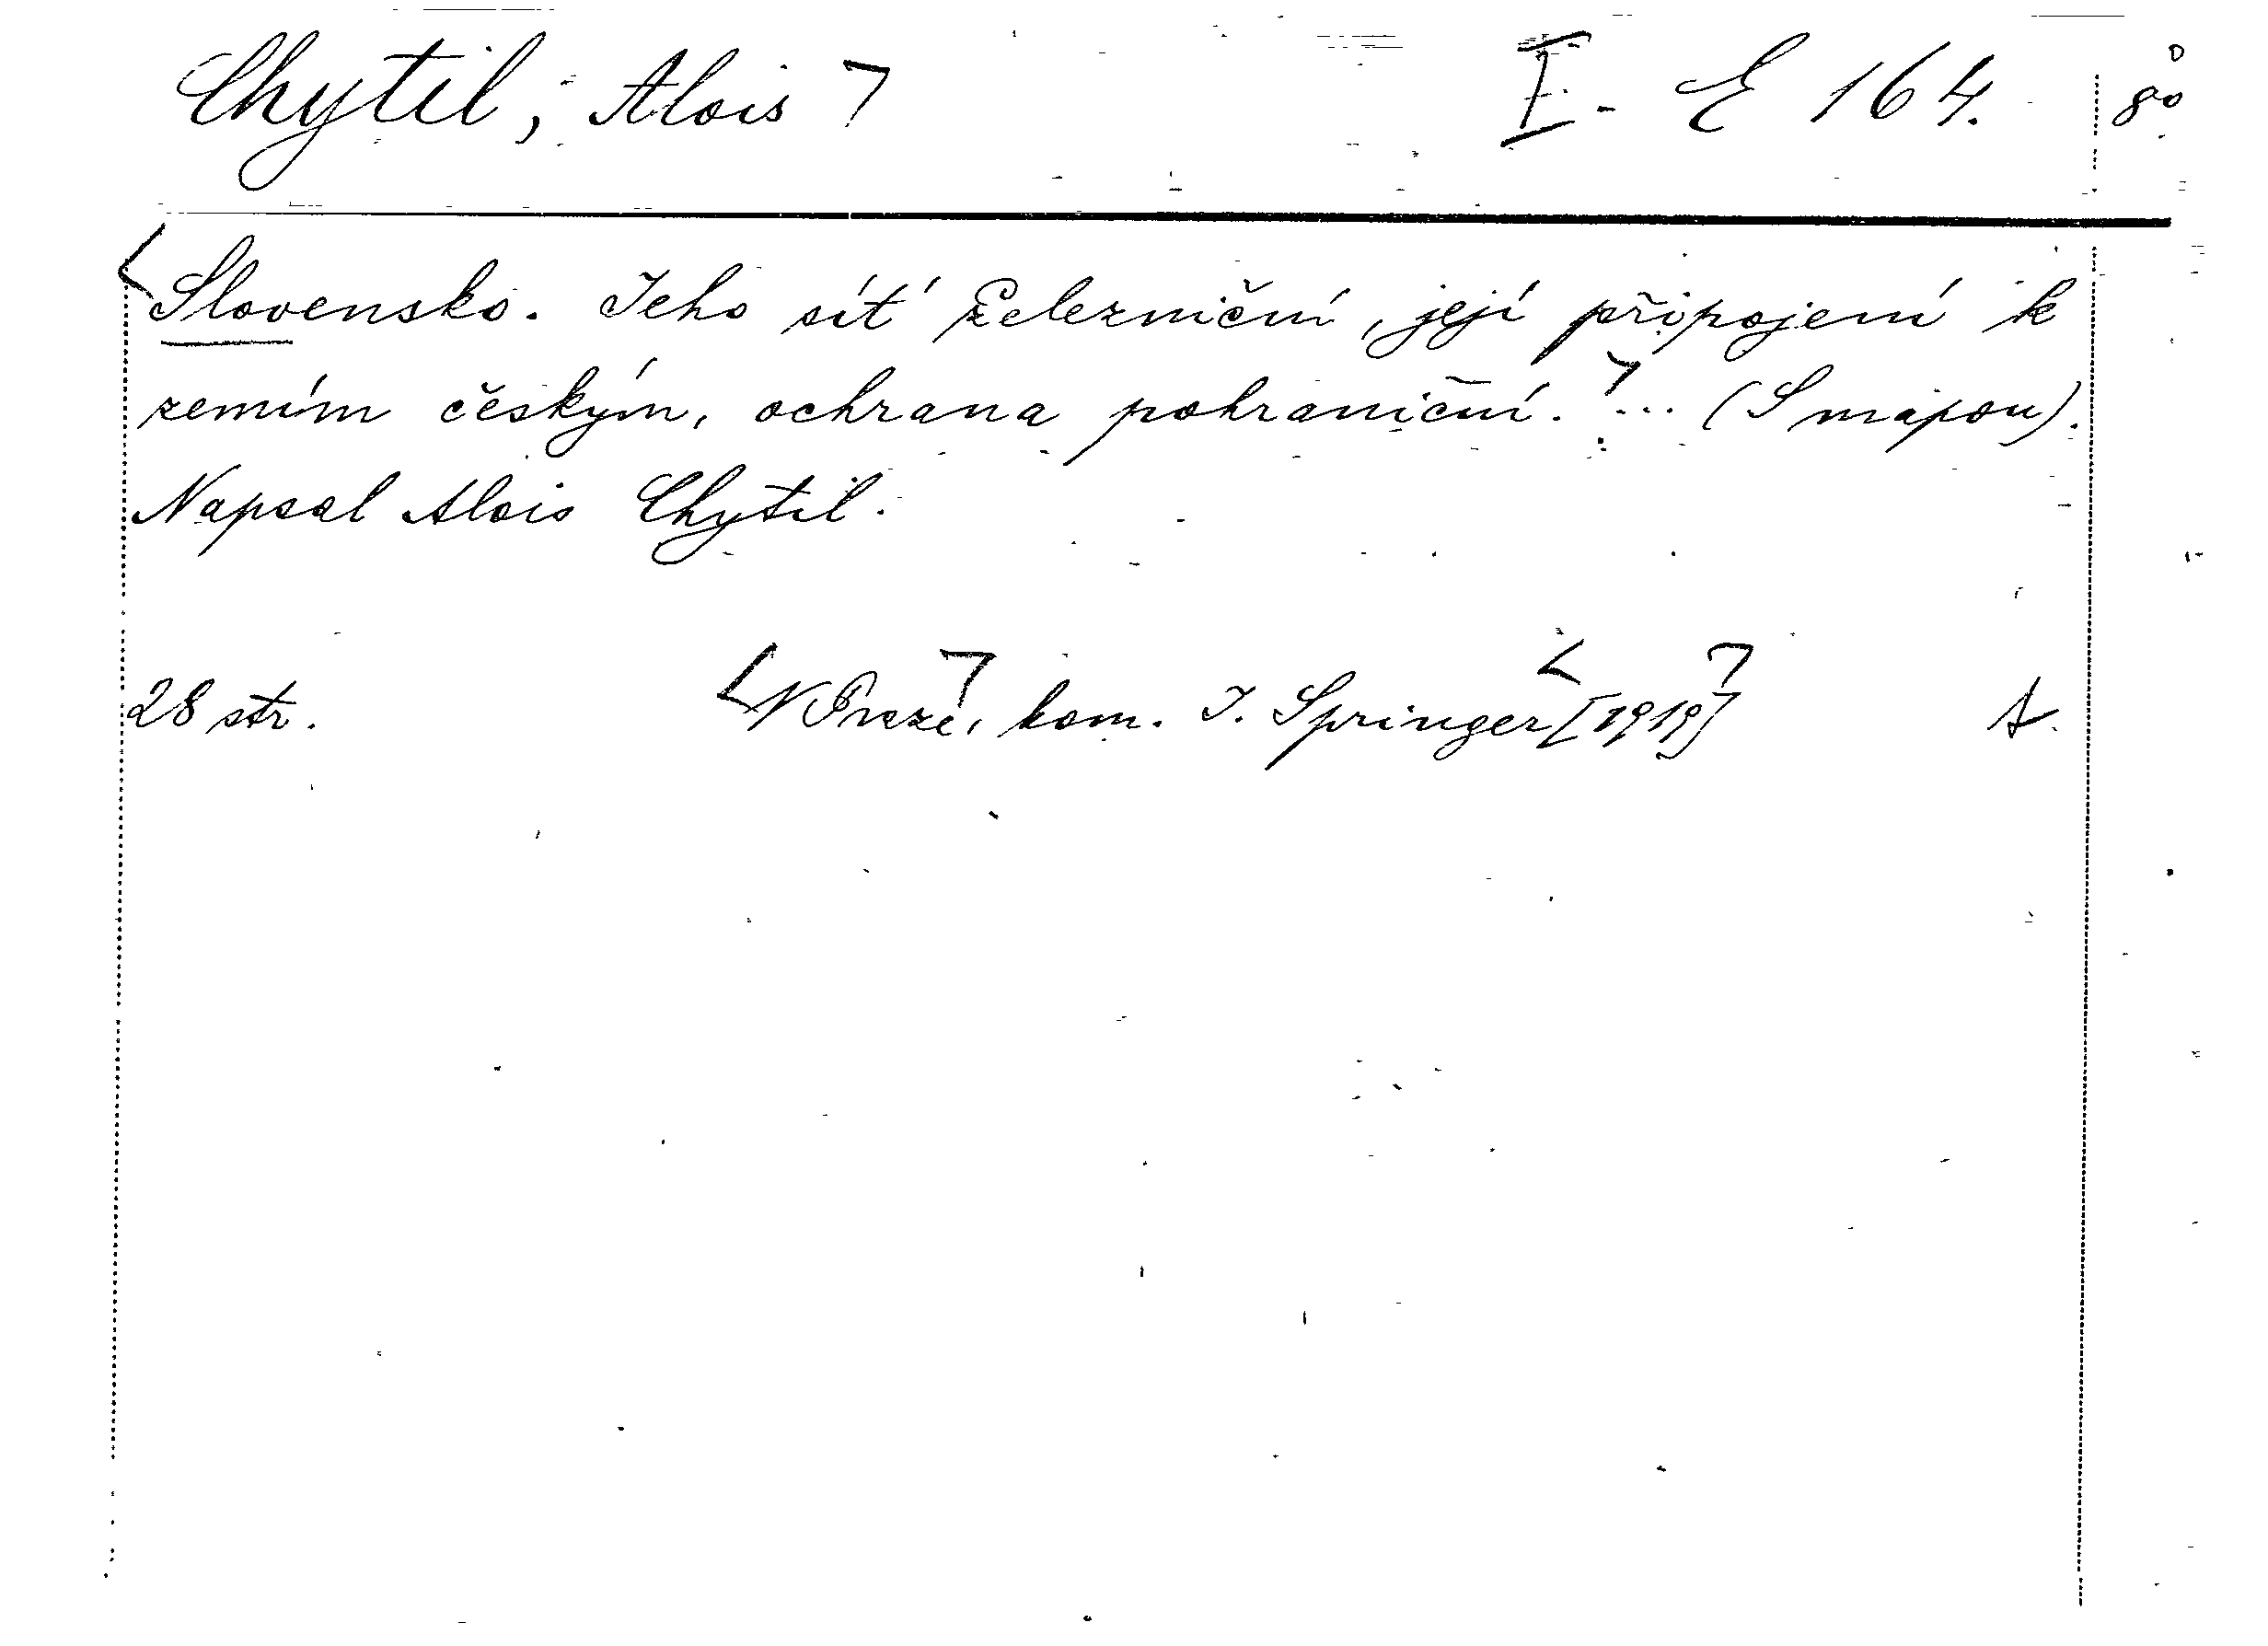 Chytil, Alois ⌉ I - E 164. 8°
Slovensko. Jeho síť železniční, její připojení k
zemím českým, ochrana pohraniční. ... (S mapou).
Napsal Alois Chytil.
28 str. V Praze, kom. J. Springer [1919] A.